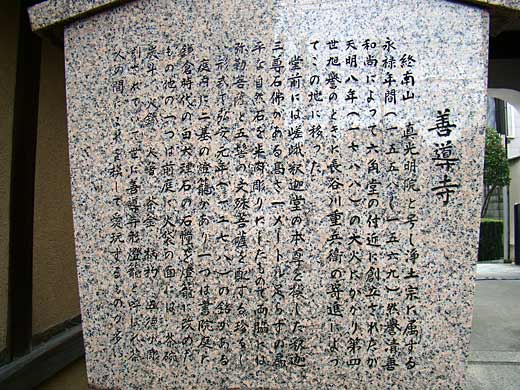 善導寺
終南山 直光明院と号し浄土宗に属する
永禄年間(一五五八〜一五六九)然誉清善
和尚によって六角堂の付近に創立されたが
天明八年(一七八八)の大火にかかり第四
世旭誉のとき長谷川重兵衛の寄進によっ
てこの地に移った
堂前には嵯峨釈迦堂の本尊を模した釈迦
三尊石佛がある高さ一メートル足らずの扁
平な自然石を半肉彫りにしたもので両脇には
弥勒菩薩と五髻の文殊菩薩を配する珍らし
い形式で弘安元年(一二七八)の銘がある
庭内に二基の燈籠があり一つは書院庭に
鎌倉時代の白大理石の石幢を燈籠に改めた
もの他の一つは前庭に火袋の面には茶碗
炭斗 火鉢 五徳が彫
刻されていて世に善導寺形燈籠と呼ばれ茶
人の間にこれを模して愛玩するものが多い